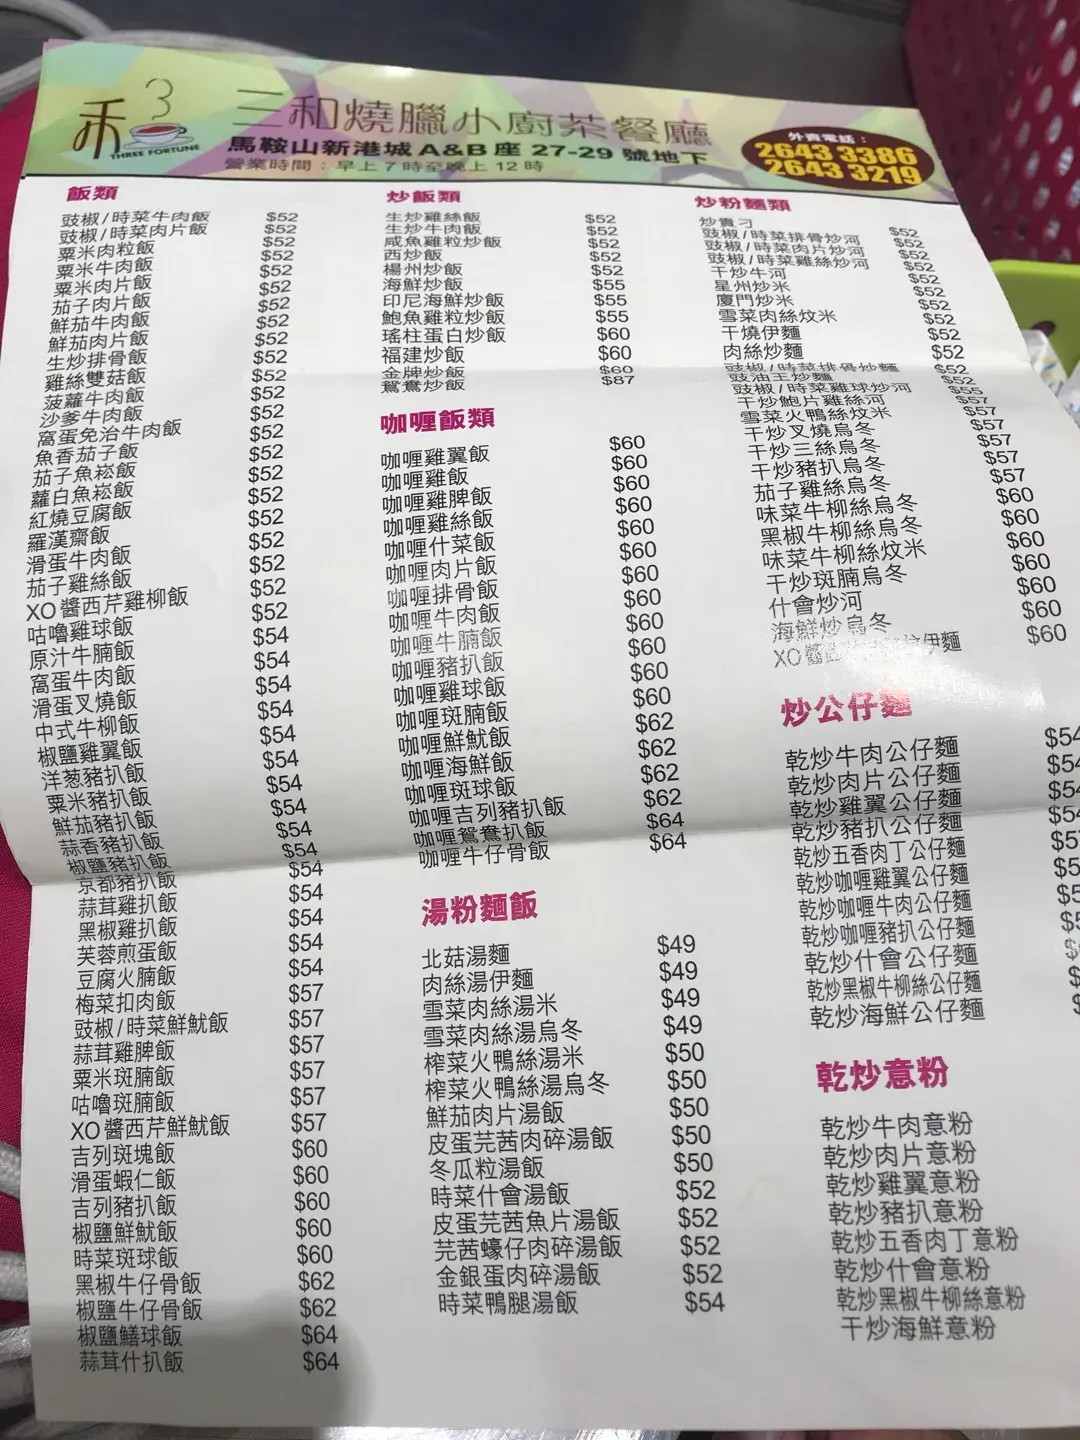 禾3
THREE FORTUNE
三和燒臘小廚茶餐廳
馬鞍山新港城 A&B 座 27-29 號地下
營業時間：早上 7 時至晚上 12 時
外賣電話：
2643 3386
2643 3219
飯類
豉椒/時菜牛肉飯 $52
豉椒/時菜肉片飯 $52
粟米肉粒飯 $52
粟米牛肉飯 $52
粟米肉片飯 $52
茄子肉片飯 $52
鮮茄牛肉飯 $52
鮮茄肉片飯 $52
生炒排骨飯 $52
雞絲雙菇飯 $52
菠蘿牛肉飯 $52
沙爹牛肉飯 $52
窩蛋免治牛肉飯 $52
魚香茄子飯 $52
茄子魚崧飯 $52
蘿白魚崧飯 $52
紅燒豆腐飯 $52
羅漢齋飯 $52
滑蛋牛肉飯 $52
茄子雞絲飯 $52
XO醬西芹雞柳飯 $52
咕嚕雞球飯 $54
原汁牛腩飯 $54
窩蛋牛肉飯 $54
滑蛋叉燒飯 $54
中式牛柳飯 $54
椒鹽雞翼飯 $54
洋葱豬扒飯 $54
粟米豬扒飯 $54
鮮茄豬扒飯 $54
蒜香豬扒飯 $54
椒鹽豬扒飯 $54
京都豬扒飯 $54
蒜茸雞扒飯 $54
黑椒雞扒飯 $54
芙蓉煎蛋飯 $54
豆腐火腩飯 $57
梅菜扣肉飯 $57
豉椒/時菜鮮魷飯 $57
蒜茸雞脾飯 $57
粟米斑腩飯 $57
咕嚕斑腩飯 $57
XO醬西芹鮮魷飯 $60
吉列斑塊飯 $60
滑蛋蝦仁飯 $60
吉列豬扒飯 $60
椒鹽鮮魷飯 $60
時菜斑球飯 $62
黑椒牛仔骨飯 $62
椒鹽牛仔骨飯 $64
椒鹽鱔球飯 $64
蒜茸什扒飯
炒飯類
生炒雞絲飯 $52
生炒牛肉飯 $52
咸魚雞粒炒飯 $52
西炒飯 $52
楊州炒飯 $52
海鮮炒飯 $55
印尼海鮮炒飯 $55
鮑魚雞粒炒飯 $55
瑤柱蛋白炒飯 $60
福建炒飯 $60
金牌炒飯 $60
鴛鴦炒飯 $87
咖喱飯類
咖喱雞翼飯 $60
咖喱雞飯 $60
咖喱雞脾飯 $60
咖喱雞絲飯 $60
咖喱什菜飯 $60
咖喱肉片飯 $60
咖喱排骨飯 $60
咖喱牛肉飯 $60
咖喱牛腩飯 $60
咖喱豬扒飯 $60
咖喱雞球飯 $60
咖喱斑腩飯 $60
咖喱鮮魷飯 $62
咖喱海鮮飯 $62
咖喱斑球飯 $62
咖喱吉列豬扒飯 $62
咖喱鴛鴦扒飯 $64
咖喱牛仔骨飯 $64
湯粉麵飯
北菇湯麵 $49
肉絲湯伊麵 $49
雪菜肉絲湯米 $49
雪菜肉絲湯烏冬 $49
榨菜火鴨絲湯米 $50
榨菜火鴨絲湯烏冬 $50
鮮茄肉片湯飯 $50
皮蛋芫茜肉碎湯飯 $50
冬瓜粒湯飯 $50
時菜什會湯飯 $52
皮蛋芫茜魚片湯飯 $52
芫茜蠔仔肉碎湯飯 $52
金銀蛋肉碎湯飯 $52
時菜鴨腿湯飯 $54
炒粉麵類
炒貴刁 $52
豉椒/時菜排骨炒河 $52
豉椒/時菜肉片炒河 $52
豉椒/時菜雞絲炒河 $52
干炒牛河 $52
星州炒米 $52
廈門炒米 $52
雪菜肉絲炆米 $52
干燒伊麵 $52
肉絲炒麵 $52
豉椒/時菜排骨炒麵 $52
豉油王炒麵 $55
豉椒/時菜雞球炒河 $57
干炒鮑片雞絲河 $57
雪菜火鴨絲炆米 $57
干炒叉燒烏冬 $57
干炒三絲烏冬 $57
干炒豬扒烏冬 $60
茄子雞絲烏冬 $60
味菜牛柳絲烏冬 $60
黑椒牛柳絲烏冬 $60
味菜牛柳絲炆米 $60
干炒斑腩烏冬 $60
什會炒河 $60
海鮮炒烏冬
XO醬 伊麵
炒公仔麵
乾炒牛肉公仔麵 $54
乾炒肉片公仔麵 $54
乾炒雞翼公仔麵
乾炒豬扒公仔麵
乾炒五香肉丁公仔麵
乾炒咖喱雞翼公仔麵
乾炒咖喱牛肉公仔麵
乾炒咖喱豬扒公仔麵
乾炒什會公仔麵
乾炒黑椒牛柳絲公仔麵
乾炒海鮮公仔麵
乾炒意粉
乾炒牛肉意粉
乾炒肉片意粉
乾炒雞翼意粉
乾炒豬扒意粉
乾炒五香肉丁意粉
乾炒什會意粉
乾炒黑椒牛柳絲意粉
干炒海鮮意粉